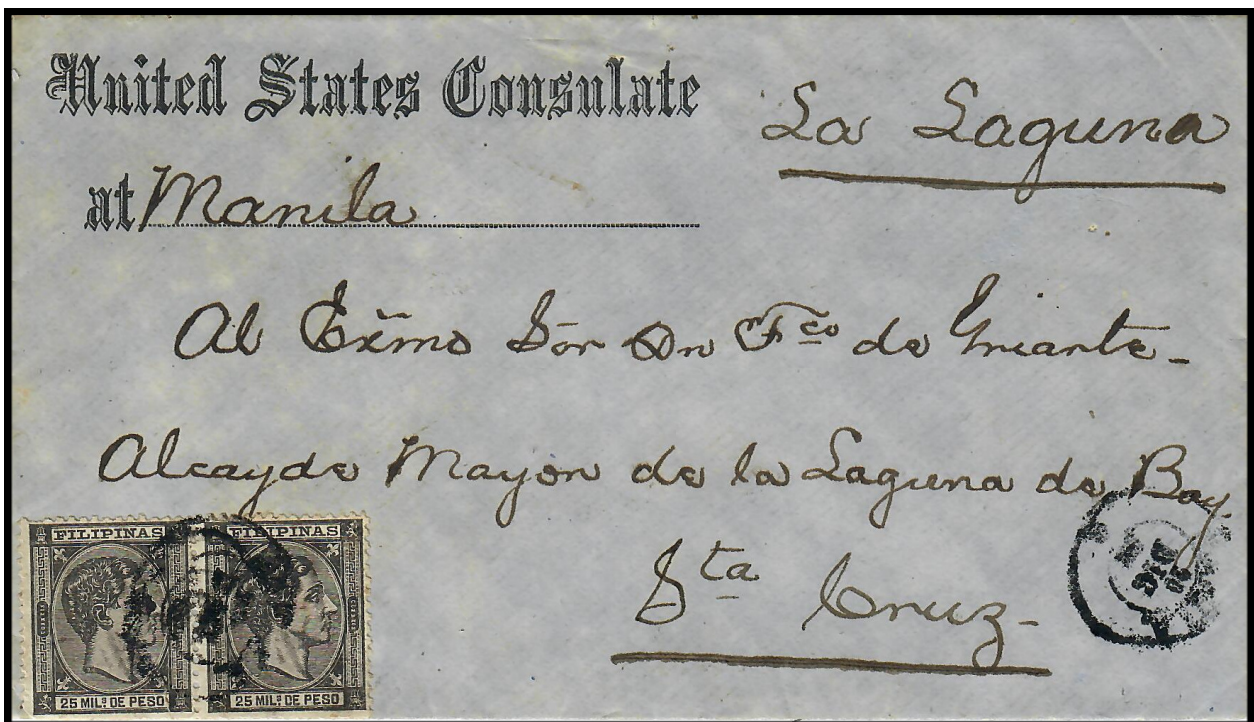 United States Consulate
at Manila
La Laguna
Al Exmo Sor Dn Fco de Yriarte-
Alcayde Mayor de la Laguna de Bay.
Sta Cruz-
FILIPINAS FILIPINAS
25 MILS. DE PESO 25 MILS. DE PESO